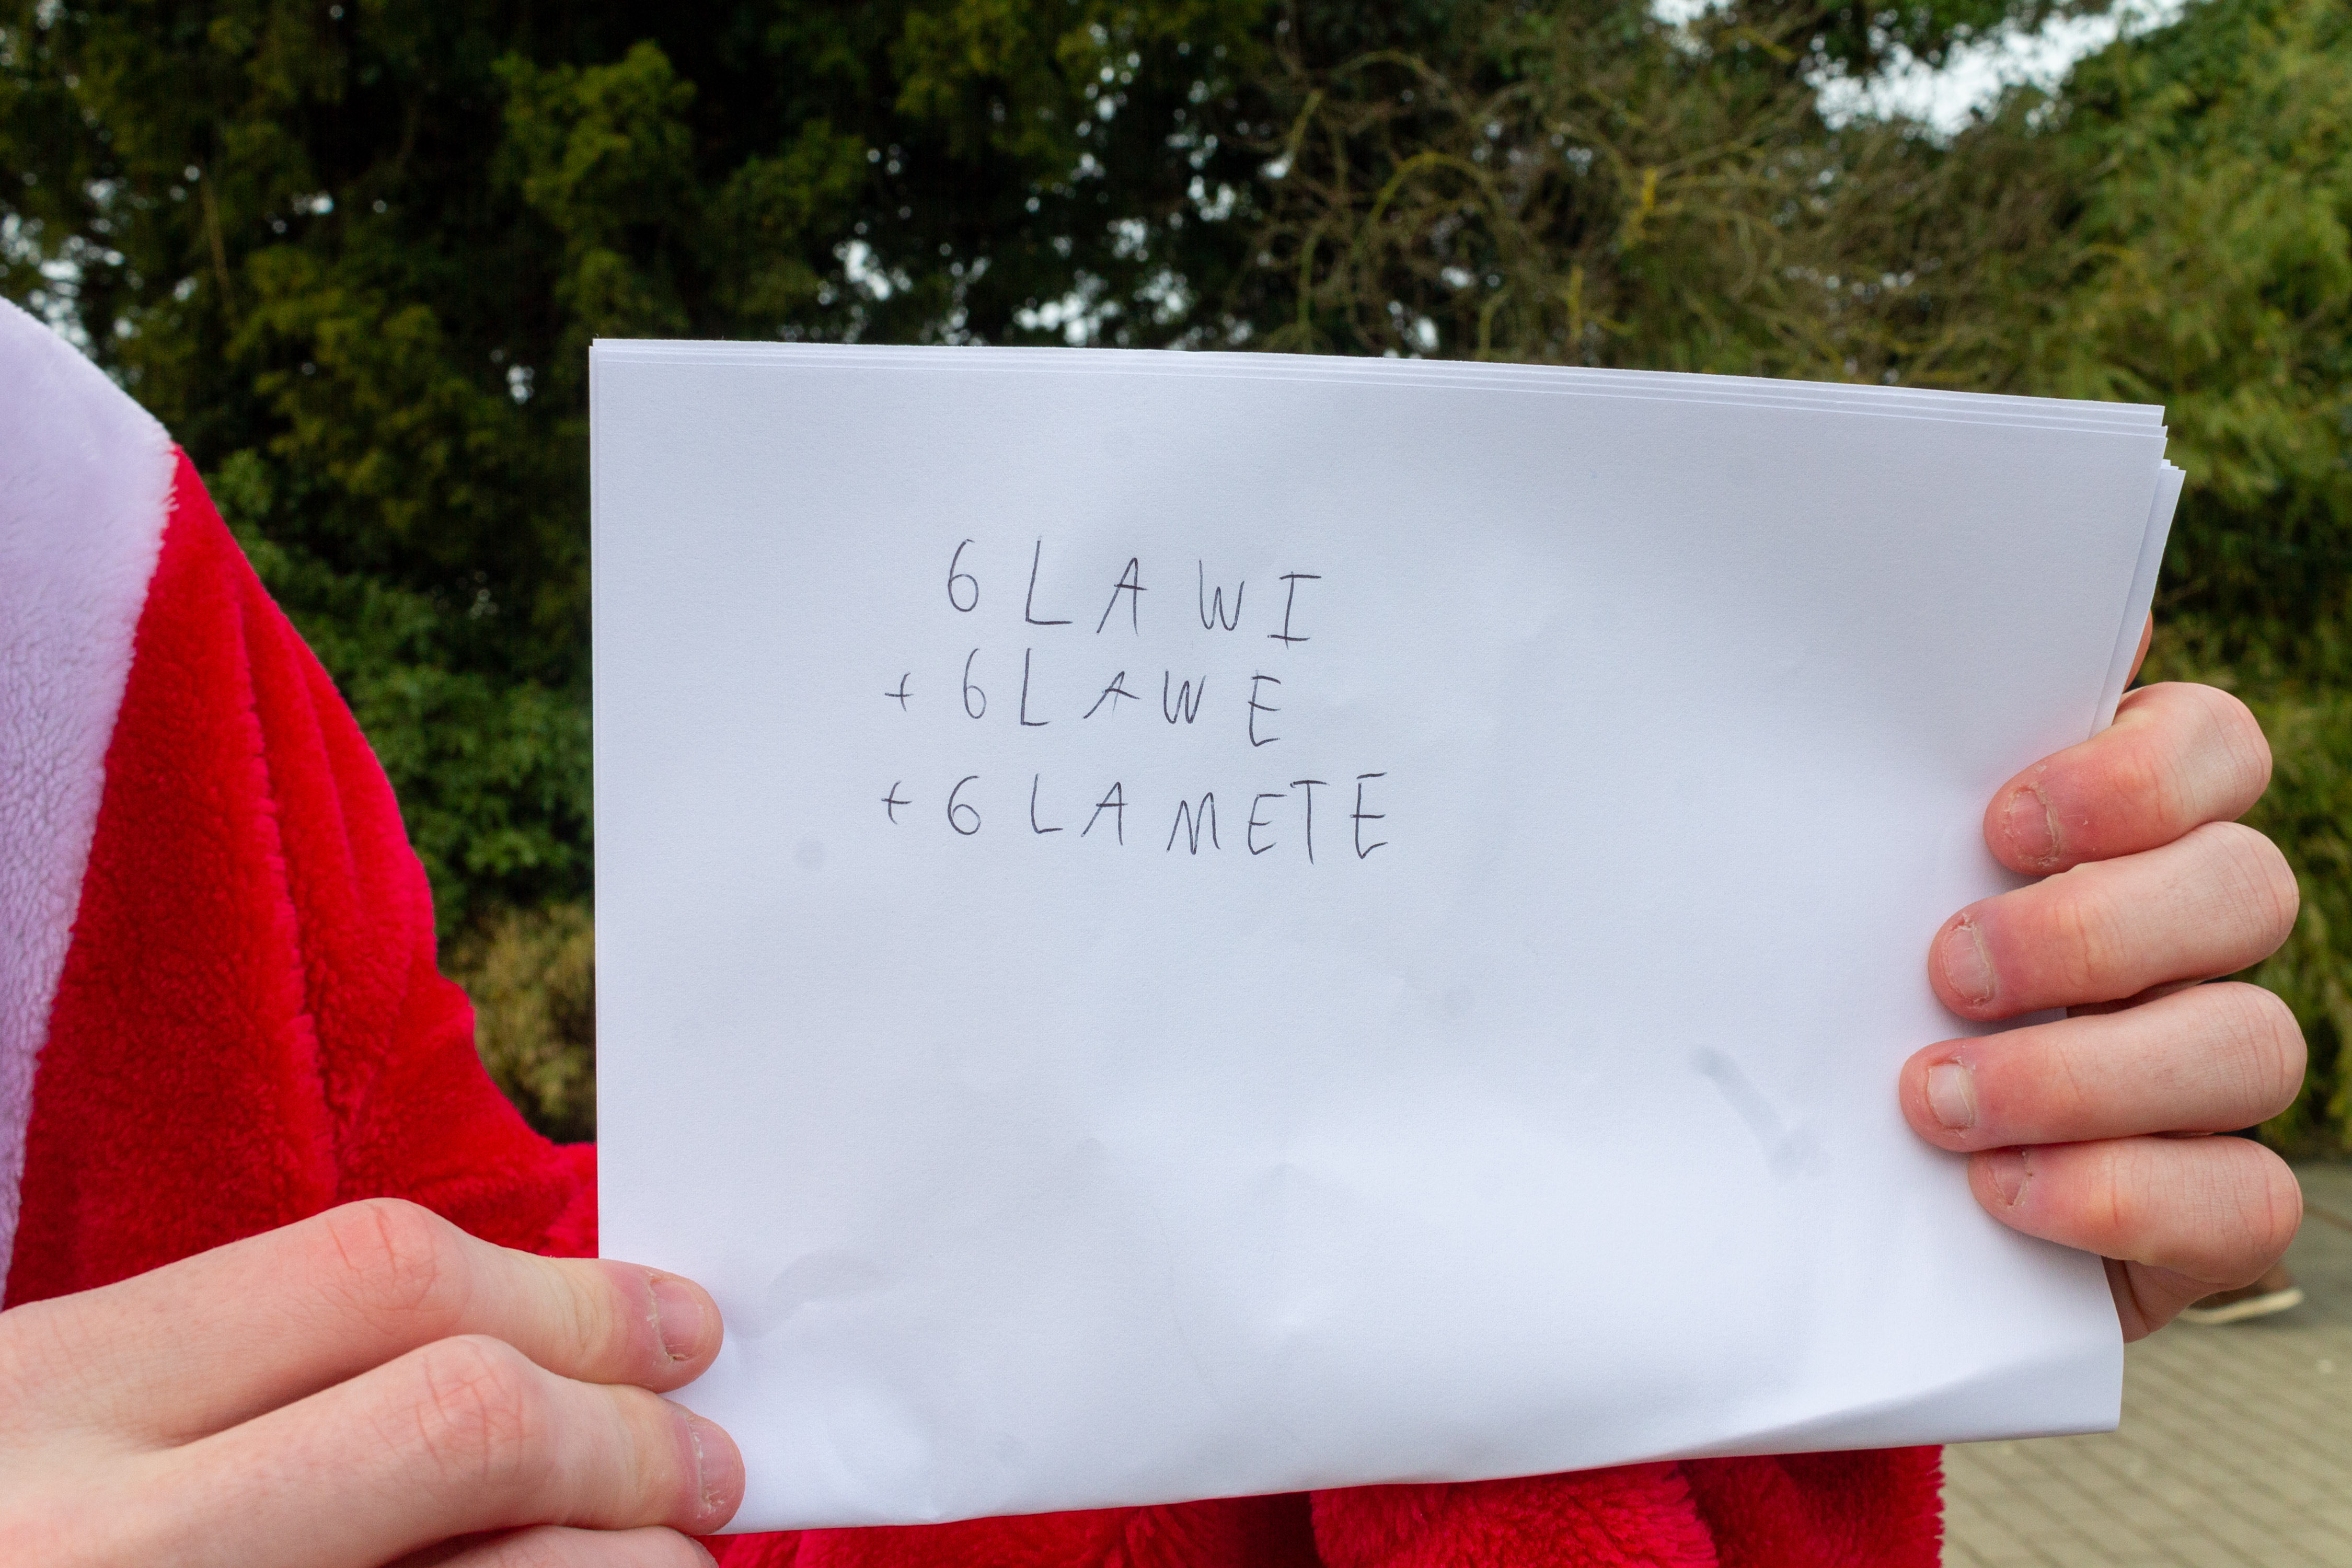 6 LAWI
+ 6 LAWE
+ 6 LAMETE